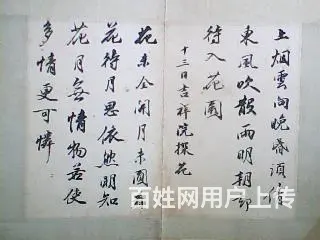 上烟雲向晚昏須倩
東風吹散雨明朝却
待入花園
十三日吉祥院探花
花未全開月未圓看
花待月思依然明知
花月無情物若使
多情更可憐
百姓网用户上传